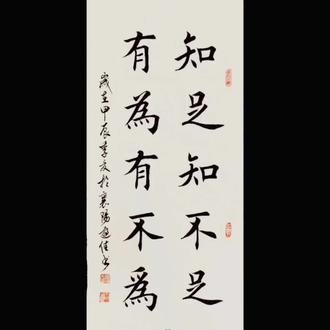 知足知不足
有為有不為
歲在甲辰季夏於襄陽趙佳書